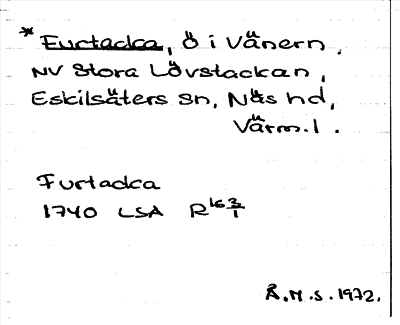 * Furtacka, Ö i Vänern,
NV Stora Lövstackan,
Eskilsäters sn, Näs hd,
Värm. l.
Furtacka
1740 LSA R 16 3/1
Å.M.S. 1972.